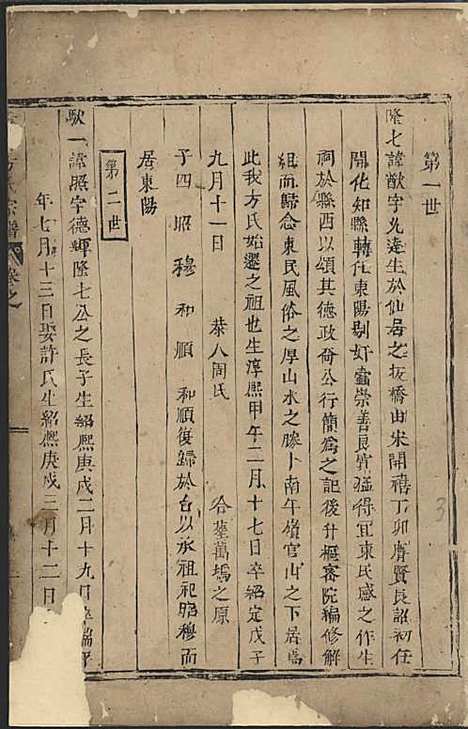 第一世
隆七諱猷字允遠生於仙居之板橋由宋開禧丁卯膺賢良詔初任
開化知縣轉任東陽剔奸蠹崇善良寬猛得宜東民感之作生
祠於縣西以頌其德政倚公行簡為之記後升樞密院編修解
組而歸念東民風俗之厚山水之勝卜南午嶺官山之下居焉
此我方氏始遷之祖也生淳熙甲午二月十七日卒紹定戊子
九月十一日 恭人周氏 合塟萬塢之原
子四 昭 穆 和 順 和順復歸於台以承祖祀昭穆而
居東陽
第二世
馱一諱照字德輝隆七公之長子生紹熙庚戌二月十九日卒端平
年七月十三日娶許氏生紹熙庚戌三月十二日
方氏宗譜 卷之
3